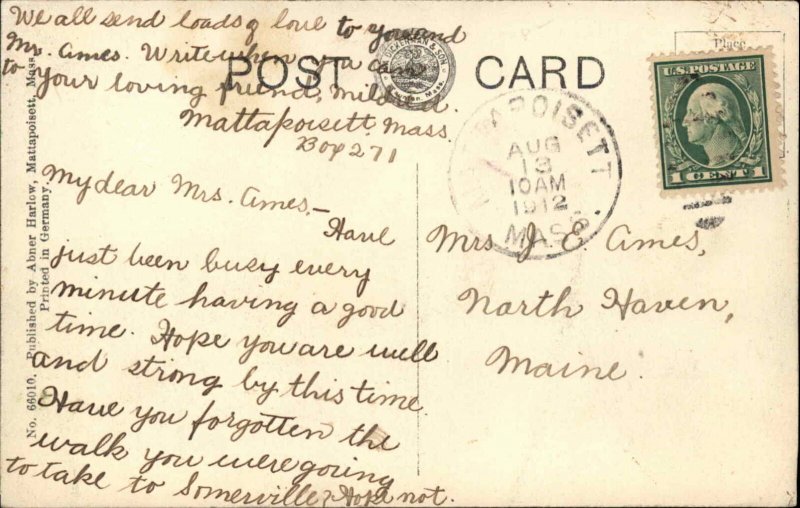 We all send loads of love to you and
Mr. Ames. Write when you can
to your loving friend, Mildred.
Mattapoisett, Mass.
Box 271
POST CARD
Place
U.S. POSTAGE
1 CENT 1
MATTAPOISETT
AUG
13
10 AM
1912
MASS
My dear Mrs. Ames,—
Have
just been busy every
minute having a good
time. Hope you are well
and strong by this time.
Have you forgotten the
walk you were going
to take to Somerville? Hope not.
Mrs J. E. Ames,
North Haven,
Maine.
No. 66010. Published by Abner Harlow, Mattapoisett, Mass.
Printed in Germany.